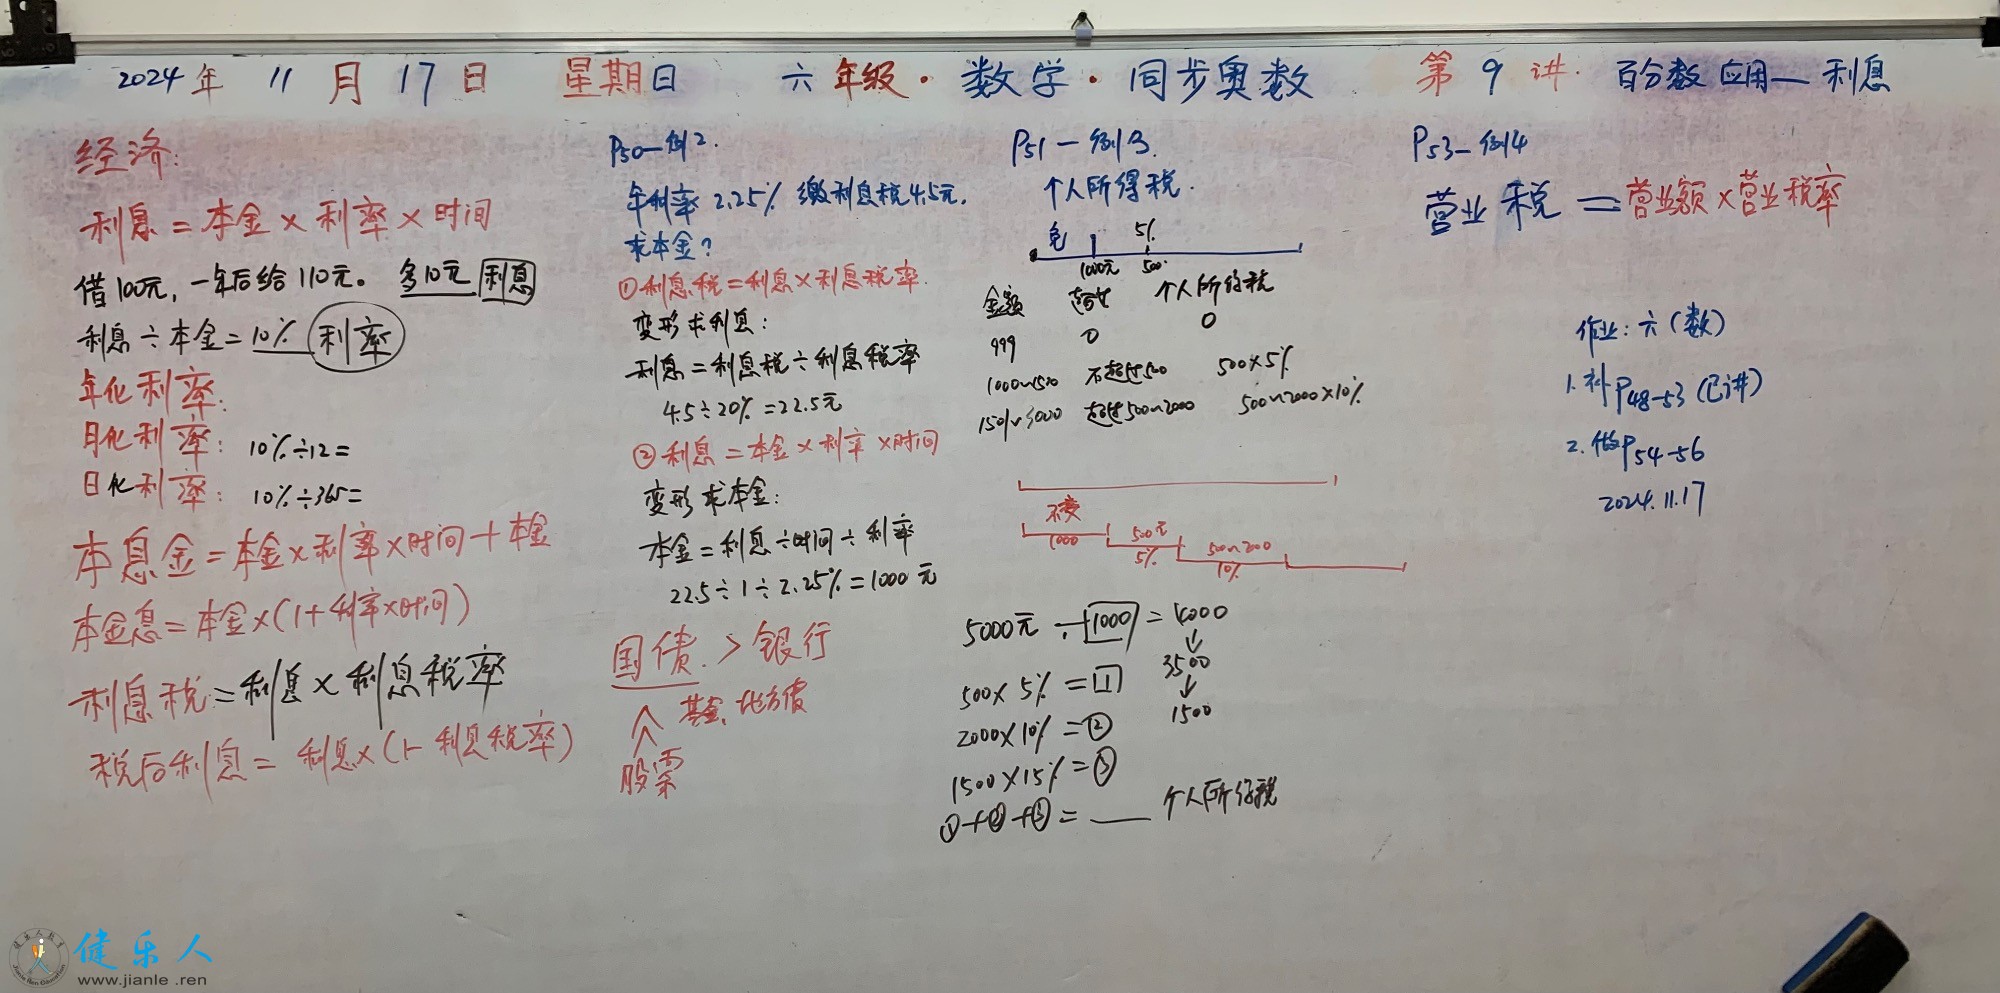 2024年 11月 17日 星期日 六年级·数学·同步奥数 第9讲· 百分数应用—利息
经济:
利息=本金×利率×时间
借100元,一年后给110元。多10元 利息
利息÷本金=10% 利率
年化利率:
月化利率: 10%÷12=
日化利率: 10%÷365=
本息金=本金×利率×时间+本金
本金息=本金×(1+利率×时间)
利息税=利息×利息税率
税后利息=利息×(1-利息税率)
P50—例2.
年利率2.25% 缴利息税4.5元.
求本金?
①利息税=利息×利息税率.
变形求利息:
利息=利息税÷利息税率
4.5÷20%=22.5元
②利息=本金×利率×时间
变形求本金:
本金=利息÷时间÷利率
22.5÷1÷2.25%=1000元
国债.>银行
基金、地方债
股票
P51—例3.
个人所得税.
免 5%
1000元 500.
金额 个人所得税
999 0 0
1000~1500 不超过500 500×5%
1501~3000 超过500~2000 500~2000×10%
1000 500元
5% 10%
5000元-1000=4000
3500
500×5%=1
1500
2000×10%=②
1500×15%=③
①+②+③=___个人所得税
P53—例4
营业税=营业额×营业税率
作业:六(数)
1.补P48-53(已讲)
2.做P54-56
2024.11.17
健乐人
www.jianle.ren